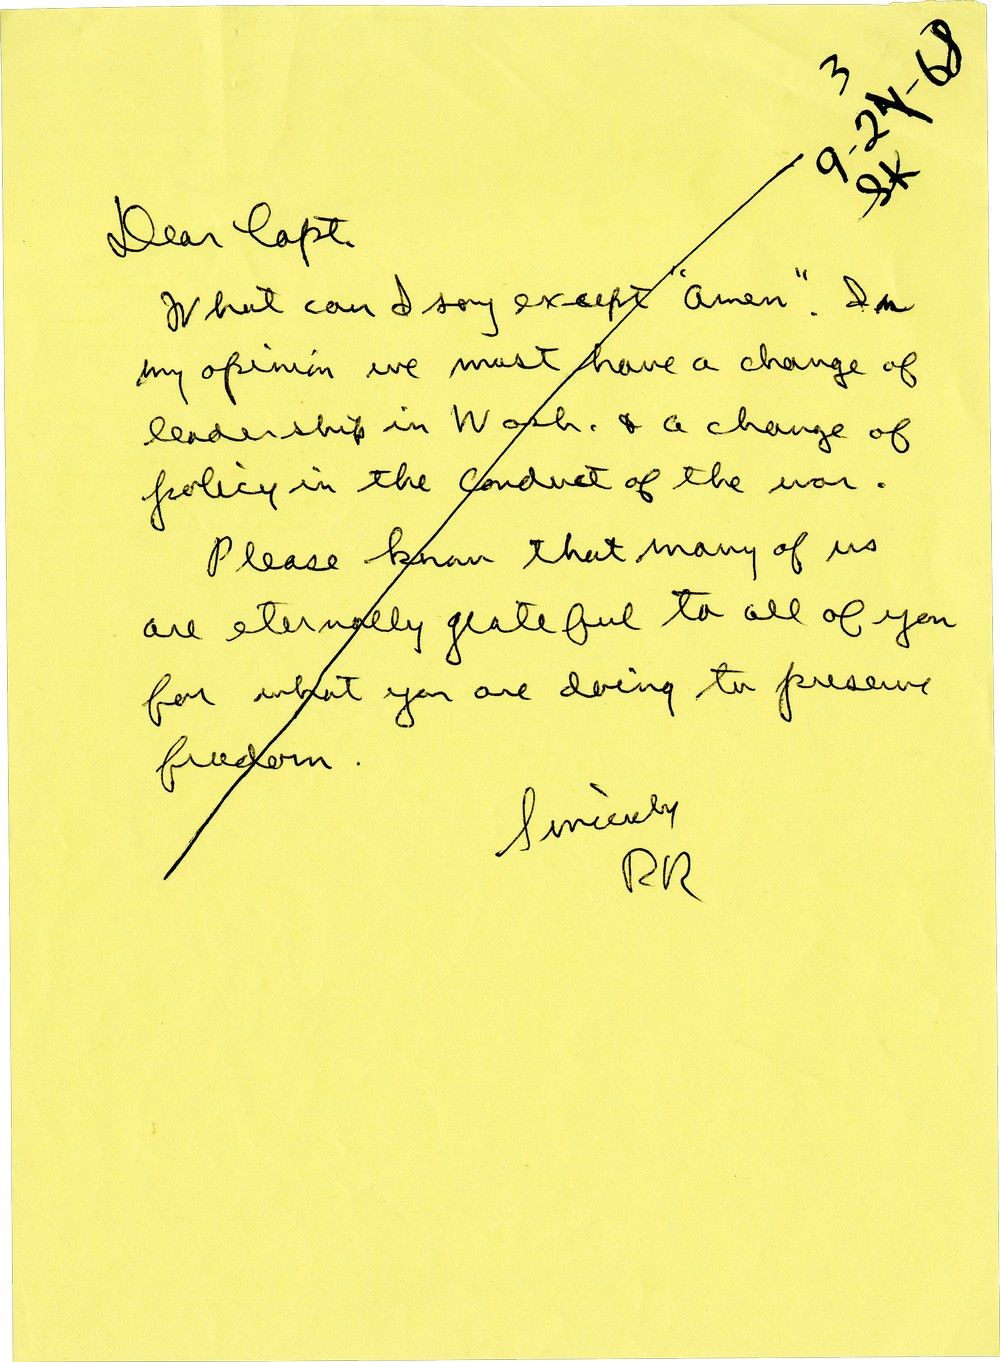 3
9-24-68
SK
Dear Capt.
What can I say except "Amen". In
my opinion we must have a change of
leadership in Wash. & a change of
policy in the conduct of the war.
Please know that many of us
are eternally grateful to all of you
for what you are doing to preserve
freedom.
Sincerely
RR